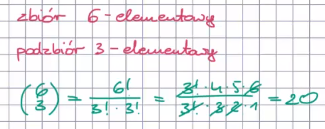 zbiór 6-elementowy
podzbiór 3-elementowy
(6 3) = 6! / 3! · 3! = 3! · 4 · 5 · 6 / 3! · 3 · 2 · 1 = 20